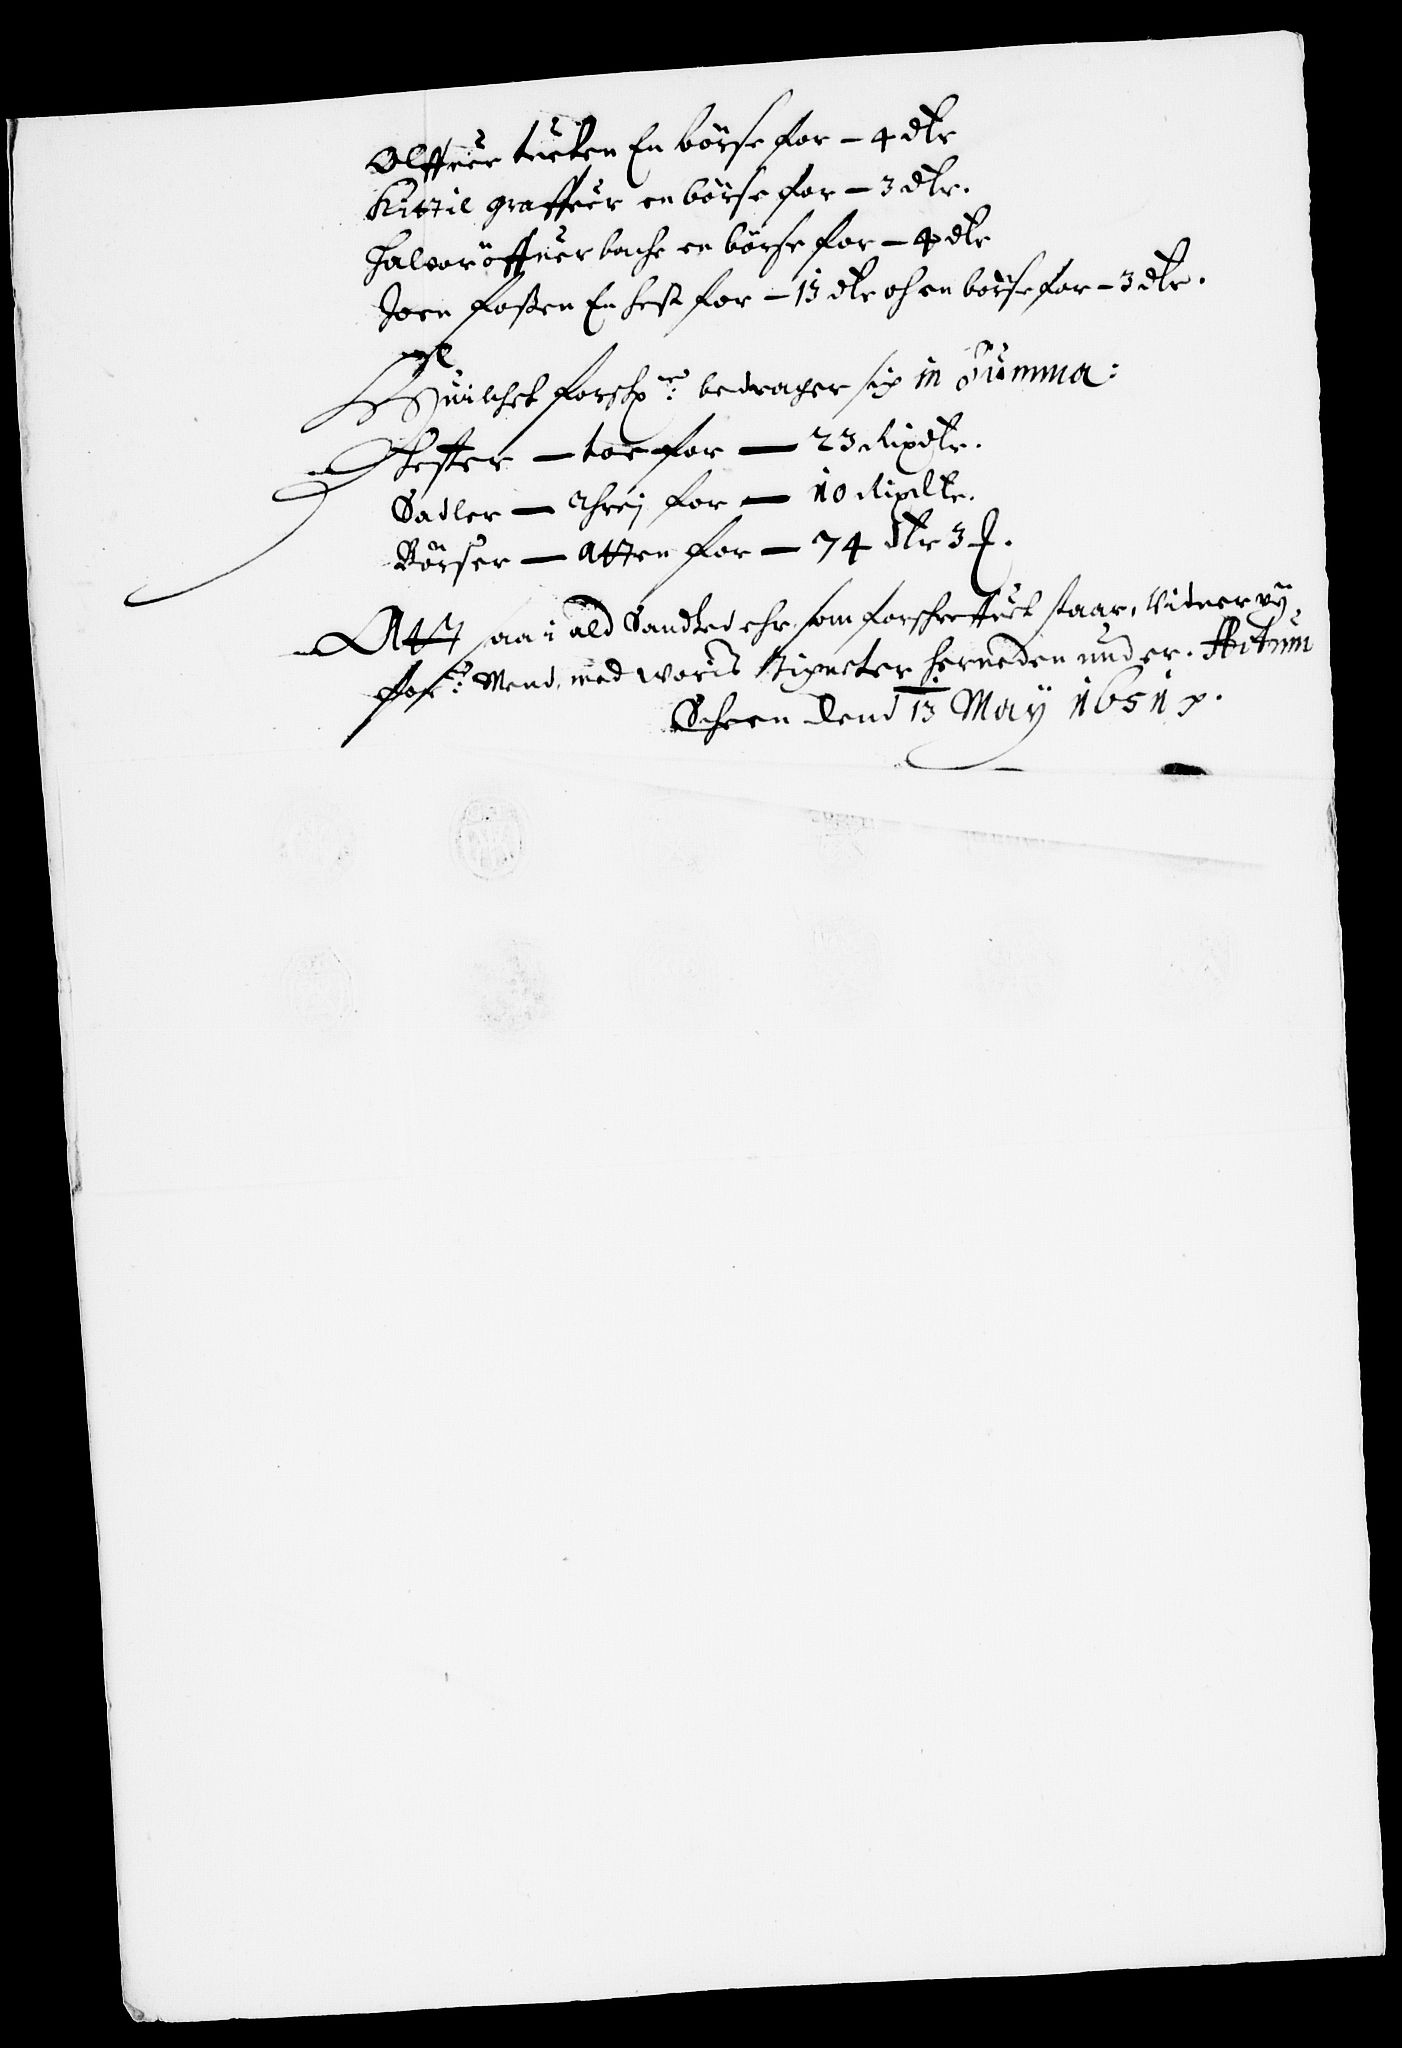 Olffuer tueten En börse for – 4 dlr
Kittil graffuer en börse for – 3 dlr.
Halvor öffuerbache en börse for – 4 dlr
Joen foßen En hest for – 13 dlr oh en börse for – 3 dlr.
Huilchet forsch: bedrager sig in Summa:
Hester – toe for – 23 Rixdlr.
Sadler – threj for – 10 Rixdlr.
Börser – Atten for – 74 dlr 3
Att saa i ald Sandhed ehr, som forschreffuet staar, Vidner vij
for: Mend, med woris Signeter herneden under. Actum
Scheen dend 13 May 1651